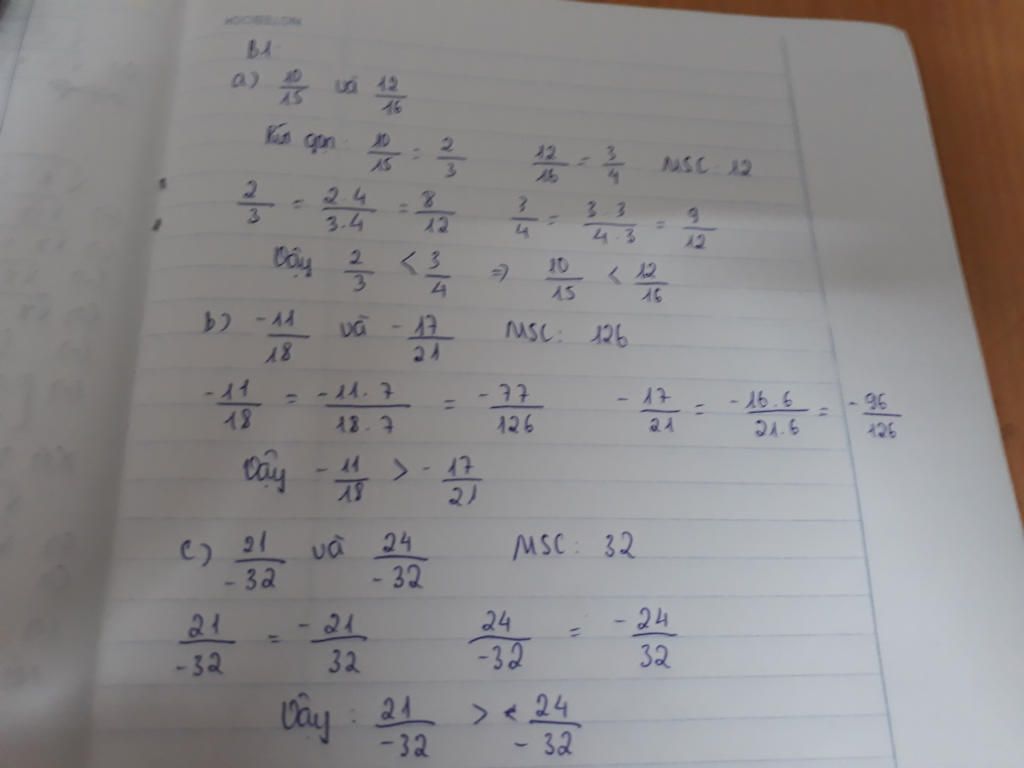 B1:
a) 10/15 và 12/16
Rút gọn: 10/15 = 2/3 12/16 = 3/4 MSC: 12
2/3 = 2.4/3.4 = 8/12 3/4 = 3.3/4.3 = 9/12
Vậy 2/3 < 3/4 => 10/15 < 12/16
b) -11/18 và -17/21 MSC: 126
-11/18 = -11.7/18.7 = -77/126 -17/21 = -16.6/21.6 = -96/126
Vậy -11/18 > -17/21
c) 21/-32 và 24/-32 MSC: 32
21/-32 = -21/32 24/-32 = -24/32
Vậy: 21/-32 > 24/-32